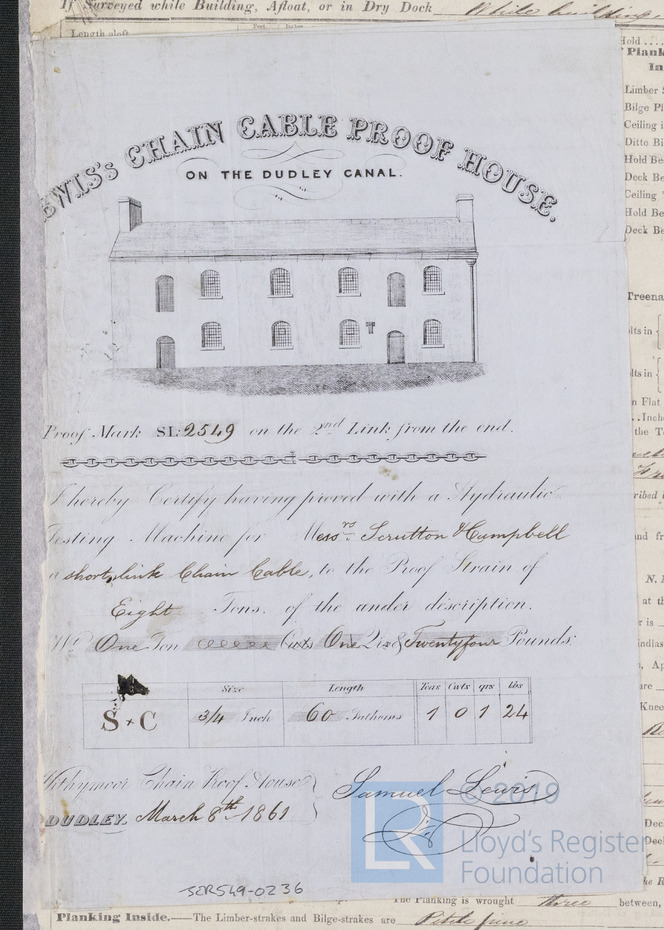 If Surveyed while Building, Afloat, or in Dry Dock While building
Length aloft
LEWIS'S CHAIN CABLE PROOF HOUSE.
ON THE DUDLEY CANAL.
Proof Mark SL:2549 on the 2nd Link from the end.
I hereby Certify having proved with a Hydraulic
Testing Machine for Messrs Scrutton & Campbell
a short link Chain Cable, to the Proof Strain of
Eight Tons. of the under description.
Wt. One Ton Cwts One Qrs & Twentyfour Pounds:
Size Length Tons Cwts qrs lbs
S+C 3/4 Inch 60 Fathoms 1 0 1 24
Withymoor Chain Proof House
DUDLEY. March 8th 1861
Samuel Lewis
© 2019
LR
Lloyd's Register
Foundation
SER549-0236
The Planking is wrought three between,
Planking Inside.—The Limber-strakes and Bilge-strakes are Pitch pine
Hold
Plank
In
Limber S
Bilge Pl
Ceiling i
Ditto Bi
Hold Be
Deck Be
Ceiling
Hold Be
Deck Be
Treena
lts in
lts in
n Flat
Inch
the T
ribed
nd fr
N.
at th
r is
indlas
s, Ap
are
Knee
Dec
Dec